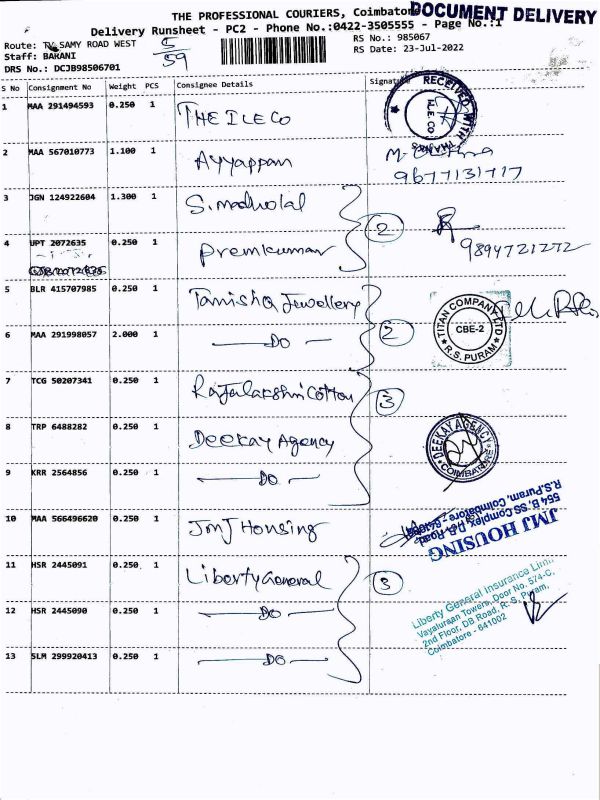 THE PROFESSIONAL COURIERS, Coimbatore
DOCUMENT DELIVERY
Delivery Runsheet - PC2 - Phone No.:0422-3505555 - Page No.:1
Route: TV SAMY ROAD WEST
5/59
RS No.: 985067
Staff: BAKANI
RS Date: 23-Jul-2022
DRS No.: DCJB98506701
S No Consignment No Weight PCS Consignee Details Signature
1 MAA 291494593 0.250 1 THE ILE CO
RECEIVED WITH THANKS
I.L.E CO
2 MAA 567010773 1.100 1 Ayyappan
9677131717
3 JGN 124922604 1.300 1 S. Madholal
2
4 UPT 2072635 0.250 1 Premkumar
9894721272
5 BLR 415707985 0.250 1 Tanishq Jewellery
TITAN COMPANY LTD
CBE-2
R.S. PURAM
6 MAA 291998057 2.000 1 — DO —
2
7 TCG 50207341 0.250 1 Rajalakshmi Cotton
3
8 TRP 6488282 0.250 1 Deekay Agency
DEEKAY AGENCY
COIMBATORE
9 KRR 2564856 0.250 1 — DO —
10 MAA 566496620 0.250 1 JMJ Housing
JMJ HOUSING
554 B, SS Complex, D.B. Road,
R.S.Puram, Coimbatore -
11 HSR 2445091 0.250 1 Liberty General
3
Liberty General Insurance Limi
Vayaluraan Towers, Door No. 574-C,
2nd Floor, DB Road, R. S. Puram,
Coimbatore - 641002
12 HSR 2445090 0.250 1 — DO —
13 SLM 299920413 0.250 1 — DO —